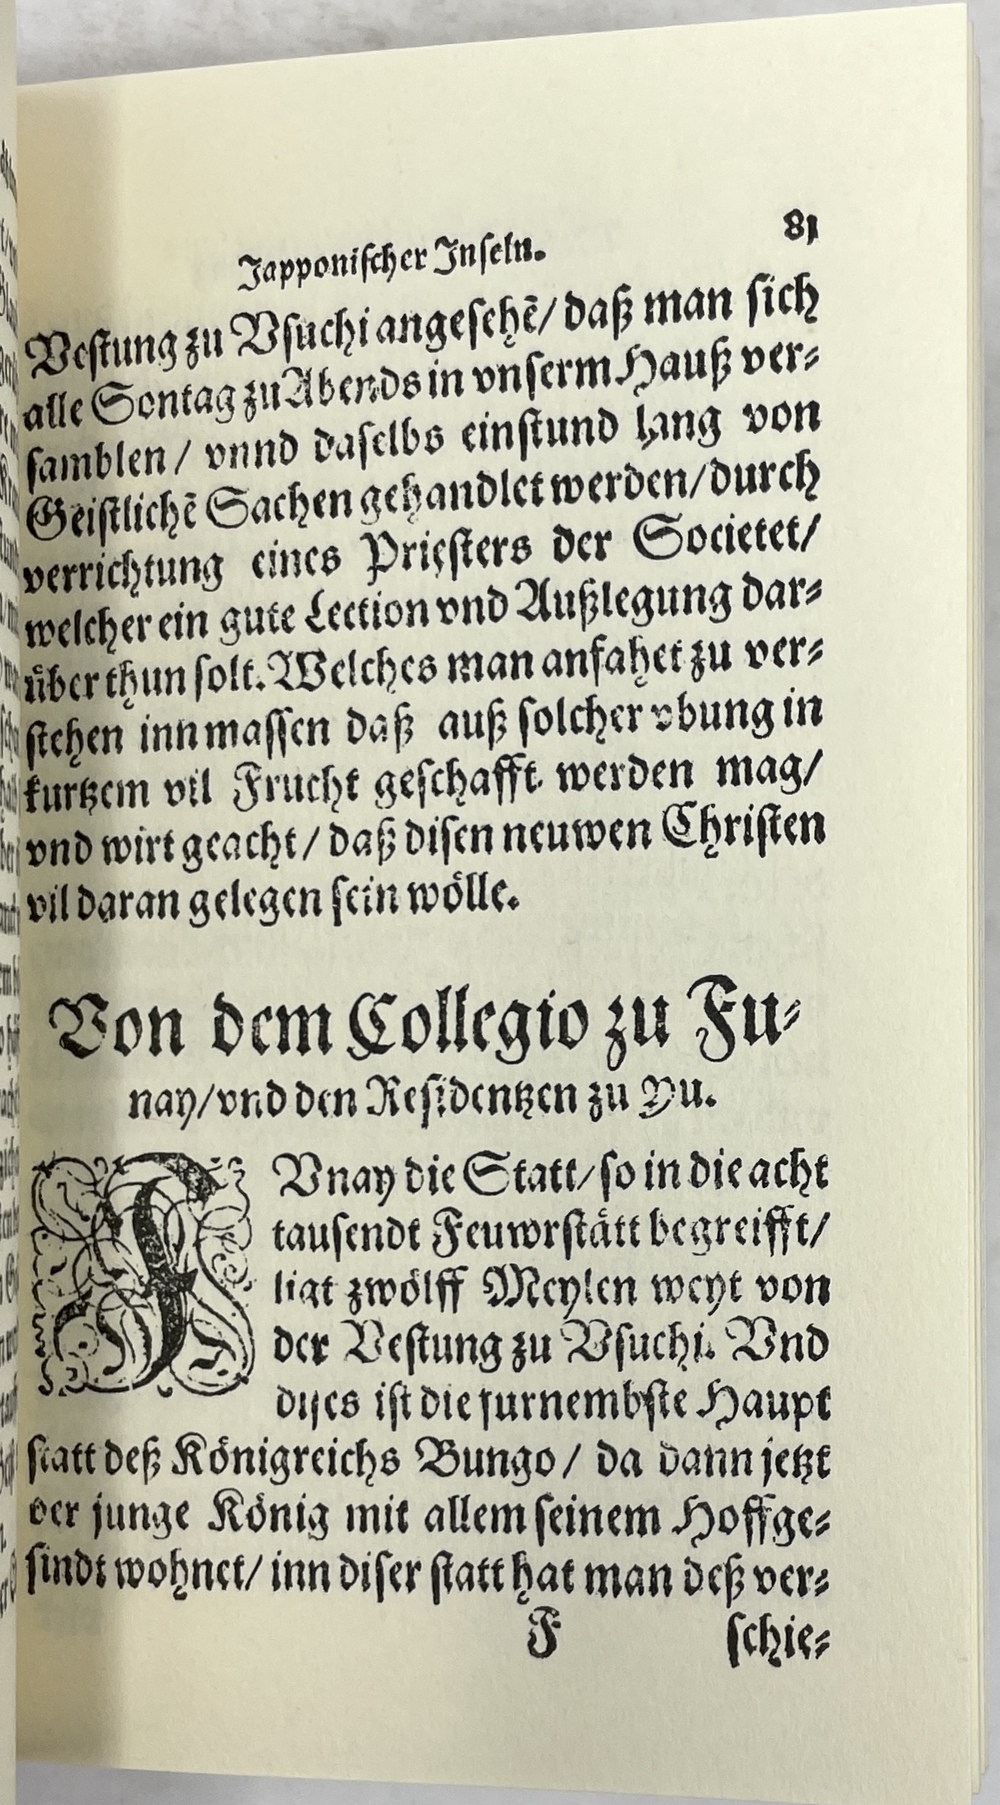 Japponischer Inseln. 81
Vestung zu Vsuchi angesehē/ daß man sich
alle Sontag zu Abends in vnserm Hauß ver⸗
samblen/ vnnd daselbs ein stund lang von
Geistlichē Sachen gehandlet werden/ durch
verrichtung eines Priesters der Societet/
welcher ein gute Lection vnd Außlegung dar⸗
über thun solt. Welches man anfahet zu ver⸗
stehen inn massen daß auß solcher vbung in
kurtzem vil Frucht geschafft werden mag/
vnd wirt geacht/ daß disen neuwen Christen
vil daran gelegen sein wölle.
Von dem Collegio zu Fu⸗
nay/ vnd den Residentzen zu Yu.
FVnay die Statt/ so in die acht
tausendt Feuwrstätt begreifft/
ligt zwölff Meylen weyt von
der Vestung zu Vsuchi. Vnd
dises ist die furnembste Haupt
statt deß Königreichs Bungo/ da dann jetzt
der junge König mit allem seinem Hoffge⸗
sindt wohnet/ inn diser statt hat man deß ver⸗
F schie⸗